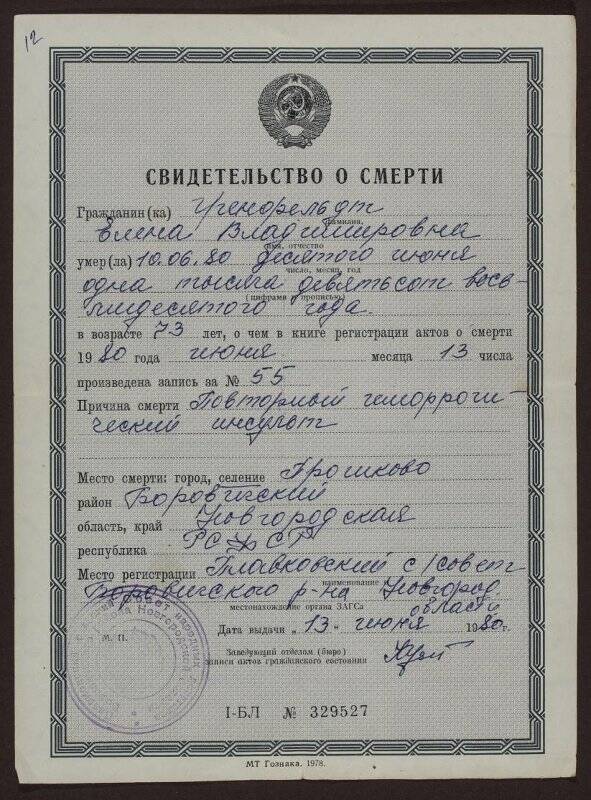 12
СВИДЕТЕЛЬСТВО О СМЕРТИ
Гражданин(ка)
фамилия,
Елена Владимировна
имя, отчество
умер(ла) 10.06.80 десятого июня
число, месяц, год
одна тысяча девятьсот вось-
(цифрами и прописью)
мидесятого года.
в возрасте 73 лет, о чем в книге регистрации актов о смерти
1980 года июня месяца 13 числа
произведена запись за № 55
Причина смерти Повторный геморроги-
ческий инсульт
Место смерти: город, селение
район Боровичский
область, край Новгородская
республика РСФСР
Место регистрации с/совет
наименование
Боровичского р-на Новгород.
местонахождение органа ЗАГСа
области
Дата выдачи „13" июня 1980г.
М. П.
Заведующий отделом (бюро)
записи актов гражданского состояния
I-БЛ № 329527
МТ Гознака. 1978.